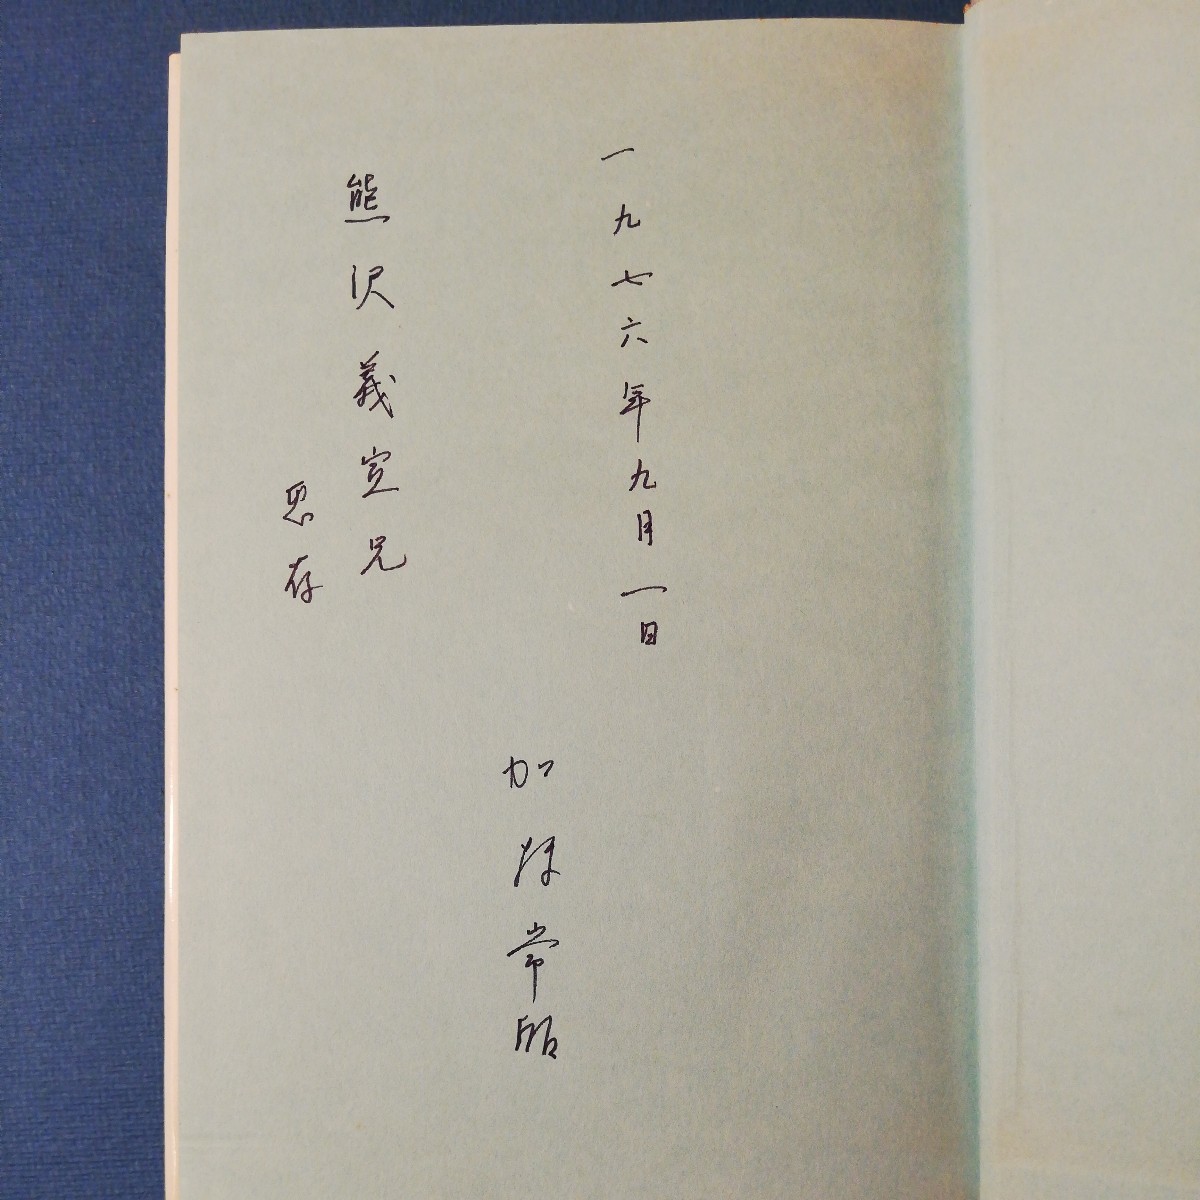 一九七六年九月一日
加藤常昭
熊沢義宣兄
恵存